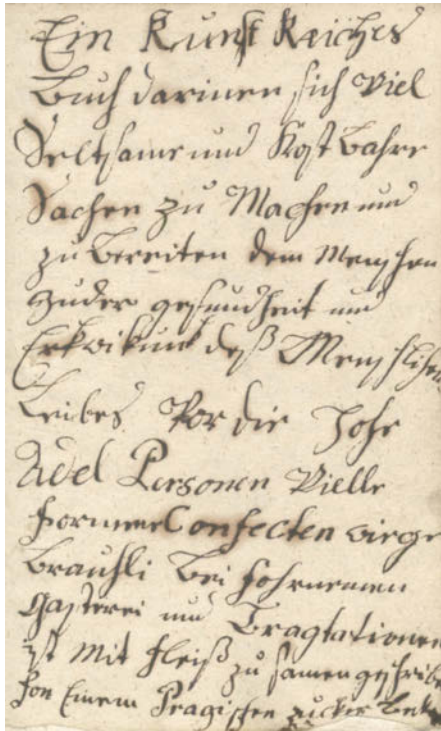 Ein Kunst Reiches
Buch darinen sich Viel
Seltsame und Kost Bahre
Sachen zu Machen und
zu Bereiten dem Menschen
zuder gesundheit und
Erkwikung deß Menschlichen
Leibes Vor die Hohe
Adel Personen Vielle
formen Confecten wie ge
Brauchli Bei fohrnemen
Gasterei und Tragtationen
ist Mit fleiß zu samen geschriben
fon Einem Pragischen zucker Beker